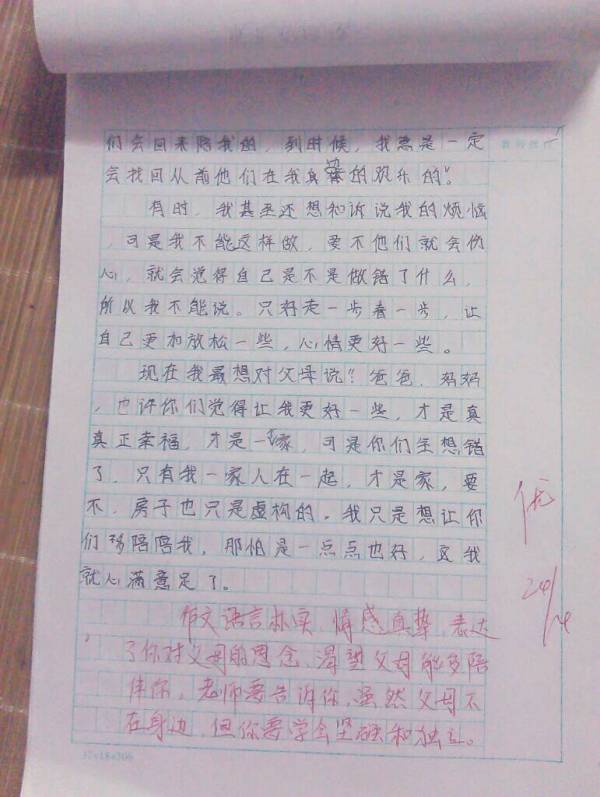 们会回来陪我的，到时候，我总是一定
会找回从前他们在我身边的欢乐的"。
有时，我甚至还想和诉说我的烦恼
，可是我不能这样做，要不他们就会伤
心，就会觉得自己是不是做错了什么，
所以我不能说。只好走一步看一步，让
自己更加放松一些，心情更好一些。
现在我最想对父母说："爸爸、妈妈
，也许你们觉得让我更好一些，才是真
真正幸福，才是一家，可是你们全想错
了，只有我一家人在一起，才是家，要
不，房子也只是虚构的。我只是想让你
们多陪陪我，那怕是一点点也好，这我
就心满意足了。
优
作文语言朴实，情感真挚，表达
了你对父母的思念，渴望父母能多陪
伴你，老师要告诉你，虽然父母不
在身边，但你要学会坚强和独立。